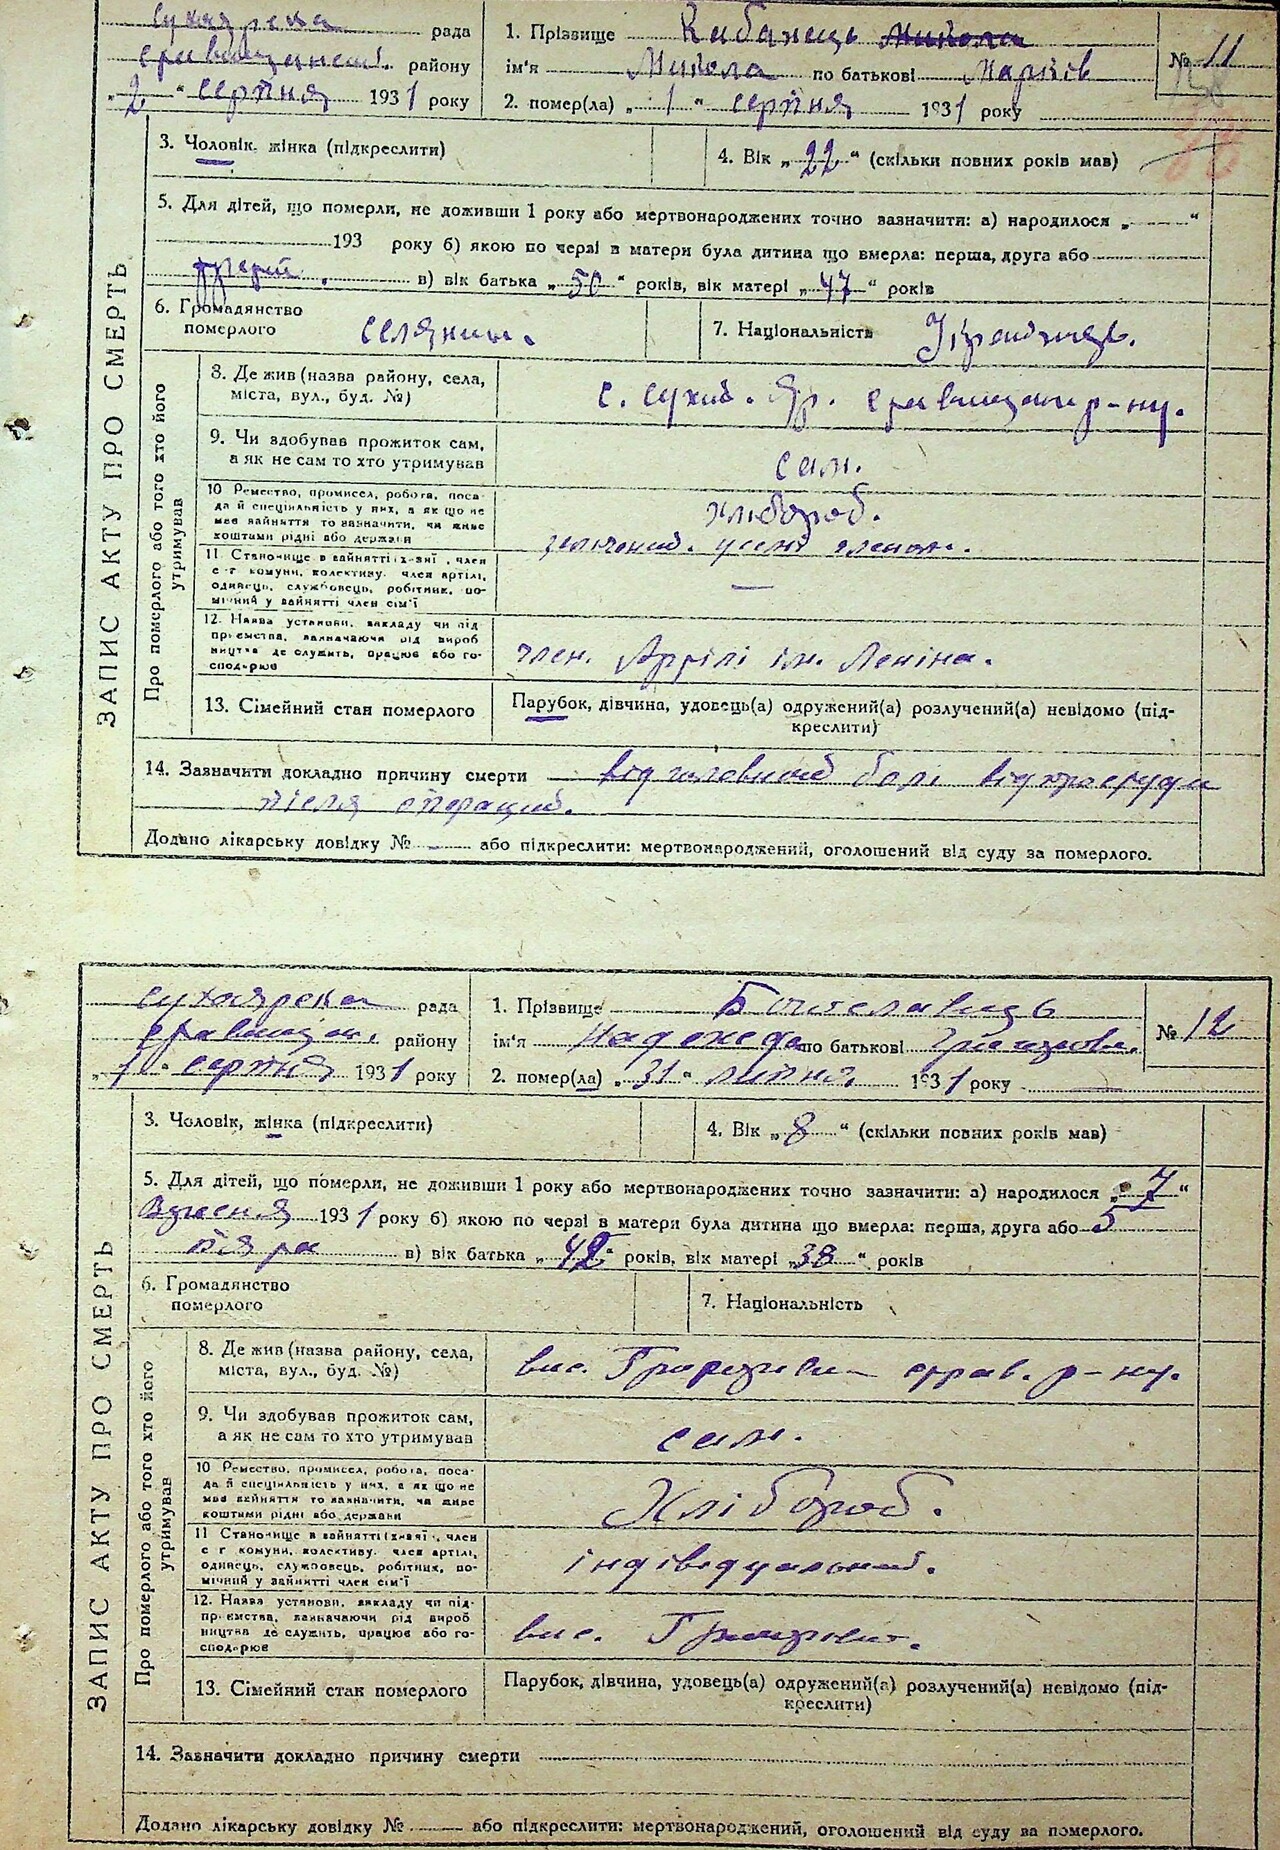 Сухоярска рада
Ставищанськ. району
„2“ серпня 1931 року
1. Прізвище Кабанець Микола
ім'я Микола по батькові Марків
2. помер(ла) „1“ серпня 1931 року
№ 11
3. Чоловік, жінка (підкреслити)
4. Вік „22“ (скільки повних років мав)
5. Для дітей, що померли, не доживши 1 року або мертвонароджених точно зазначити: а) народилося „ “
193 року б) якою по черзі в матери була дитина що вмерла: перша, друга або
в) вік батька „50“ років, вік матері „47“ років
6. Громадянство
померлого
селянин.
7. Національність Українець.
ЗАПИС АКТУ ПРО СМЕРТЬ
Про померлого або того хто його
утримував
8. Де жив (назва району, села,
міста, вул., буд. №)
с. Сухий. Яр. Ставищан р-ну.
9. Чи здобував прожиток сам,
а як не сам то хто утримував
сам.
10 Ремество, промисел, робота, поса-
да й спеціяльність у них, а як що не
мав зайняття то зазначити, чи живе
коштами рідні або держави
Хлібороб.
11. Становище в зайнятті (хазяї, член
с-г комуни, колективу, член артілі,
одинець, службовець, робітник, по-
мічний у зайнятті член сім'ї
—
12. Назва установи, закладу чи під
приємства, зазначаючи рід вироб
ництва де служить, працює або го-
сподарює
член. Артілі ім. Леніна.
13. Сімейний стан померлого
Парубок, дівчина, удовець(а) одружений(а) розлучений(а) невідомо (під-
креслити)
14. Зазначити докладно причину смерти від головной болі від простуди
після операций.
Додано лікарську довідку № — або підкреслити: мертвонароджений, оголошений від суду за померлого.
Сухоярска рада
Ставищан. району
„1“ серпня 1931 року
1. Прізвище
ім'я Надежда по батькові
2. помер(ла) „31“ липня 1931 року
№ 12
3. Чоловік, жінка (підкреслити)
4. Вік „8“ (скільки повних років мав)
5. Для дітей, що померли, не доживши 1 року або мертвонароджених точно зазначити: а) народилося „7“
1931 року б) якою по черзі в матери була дитина що вмерла: перша, друга або 5
пята в) вік батька „42“ років, вік матері „38“ років
6. Громадянство
померлого
7. Національність
ЗАПИС АКТУ ПРО СМЕРТЬ
Про померлого або того хто його
утримував
8. Де жив (назва району, села,
міста, вул., буд. №)
вис. став. р-ну.
9. Чи здобував прожиток сам,
а як не сам то хто утримував
сам.
10 Ремество, промисел, робота, поса-
да й спеціяльність у них, а як що не
мав зайняття то зазначити, чи живе
коштами рідні або держави
Хлібороб.
11 Становище в зайнятті (хазяї, член
с г комуни, колективу, член артілі,
одинець, службовець, робітник, по-
мічний у зайнятті член сім'ї
індівідуальний.
12. Назва установи, закладу чи під-
приємства, зазначаючи рід вироб
ництва де служить, працює або го-
сподарює
вис.
13. Сімейний стан померлого
Парубок, дівчина, удовець(а) одружений(а) розлучений(а) невідомо (під-
креслити)
14. Зазначити докладно причину смерти
Додано лікарську довідку № — або підкреслити: мертвонароджений, оголошений від суду за померлого.